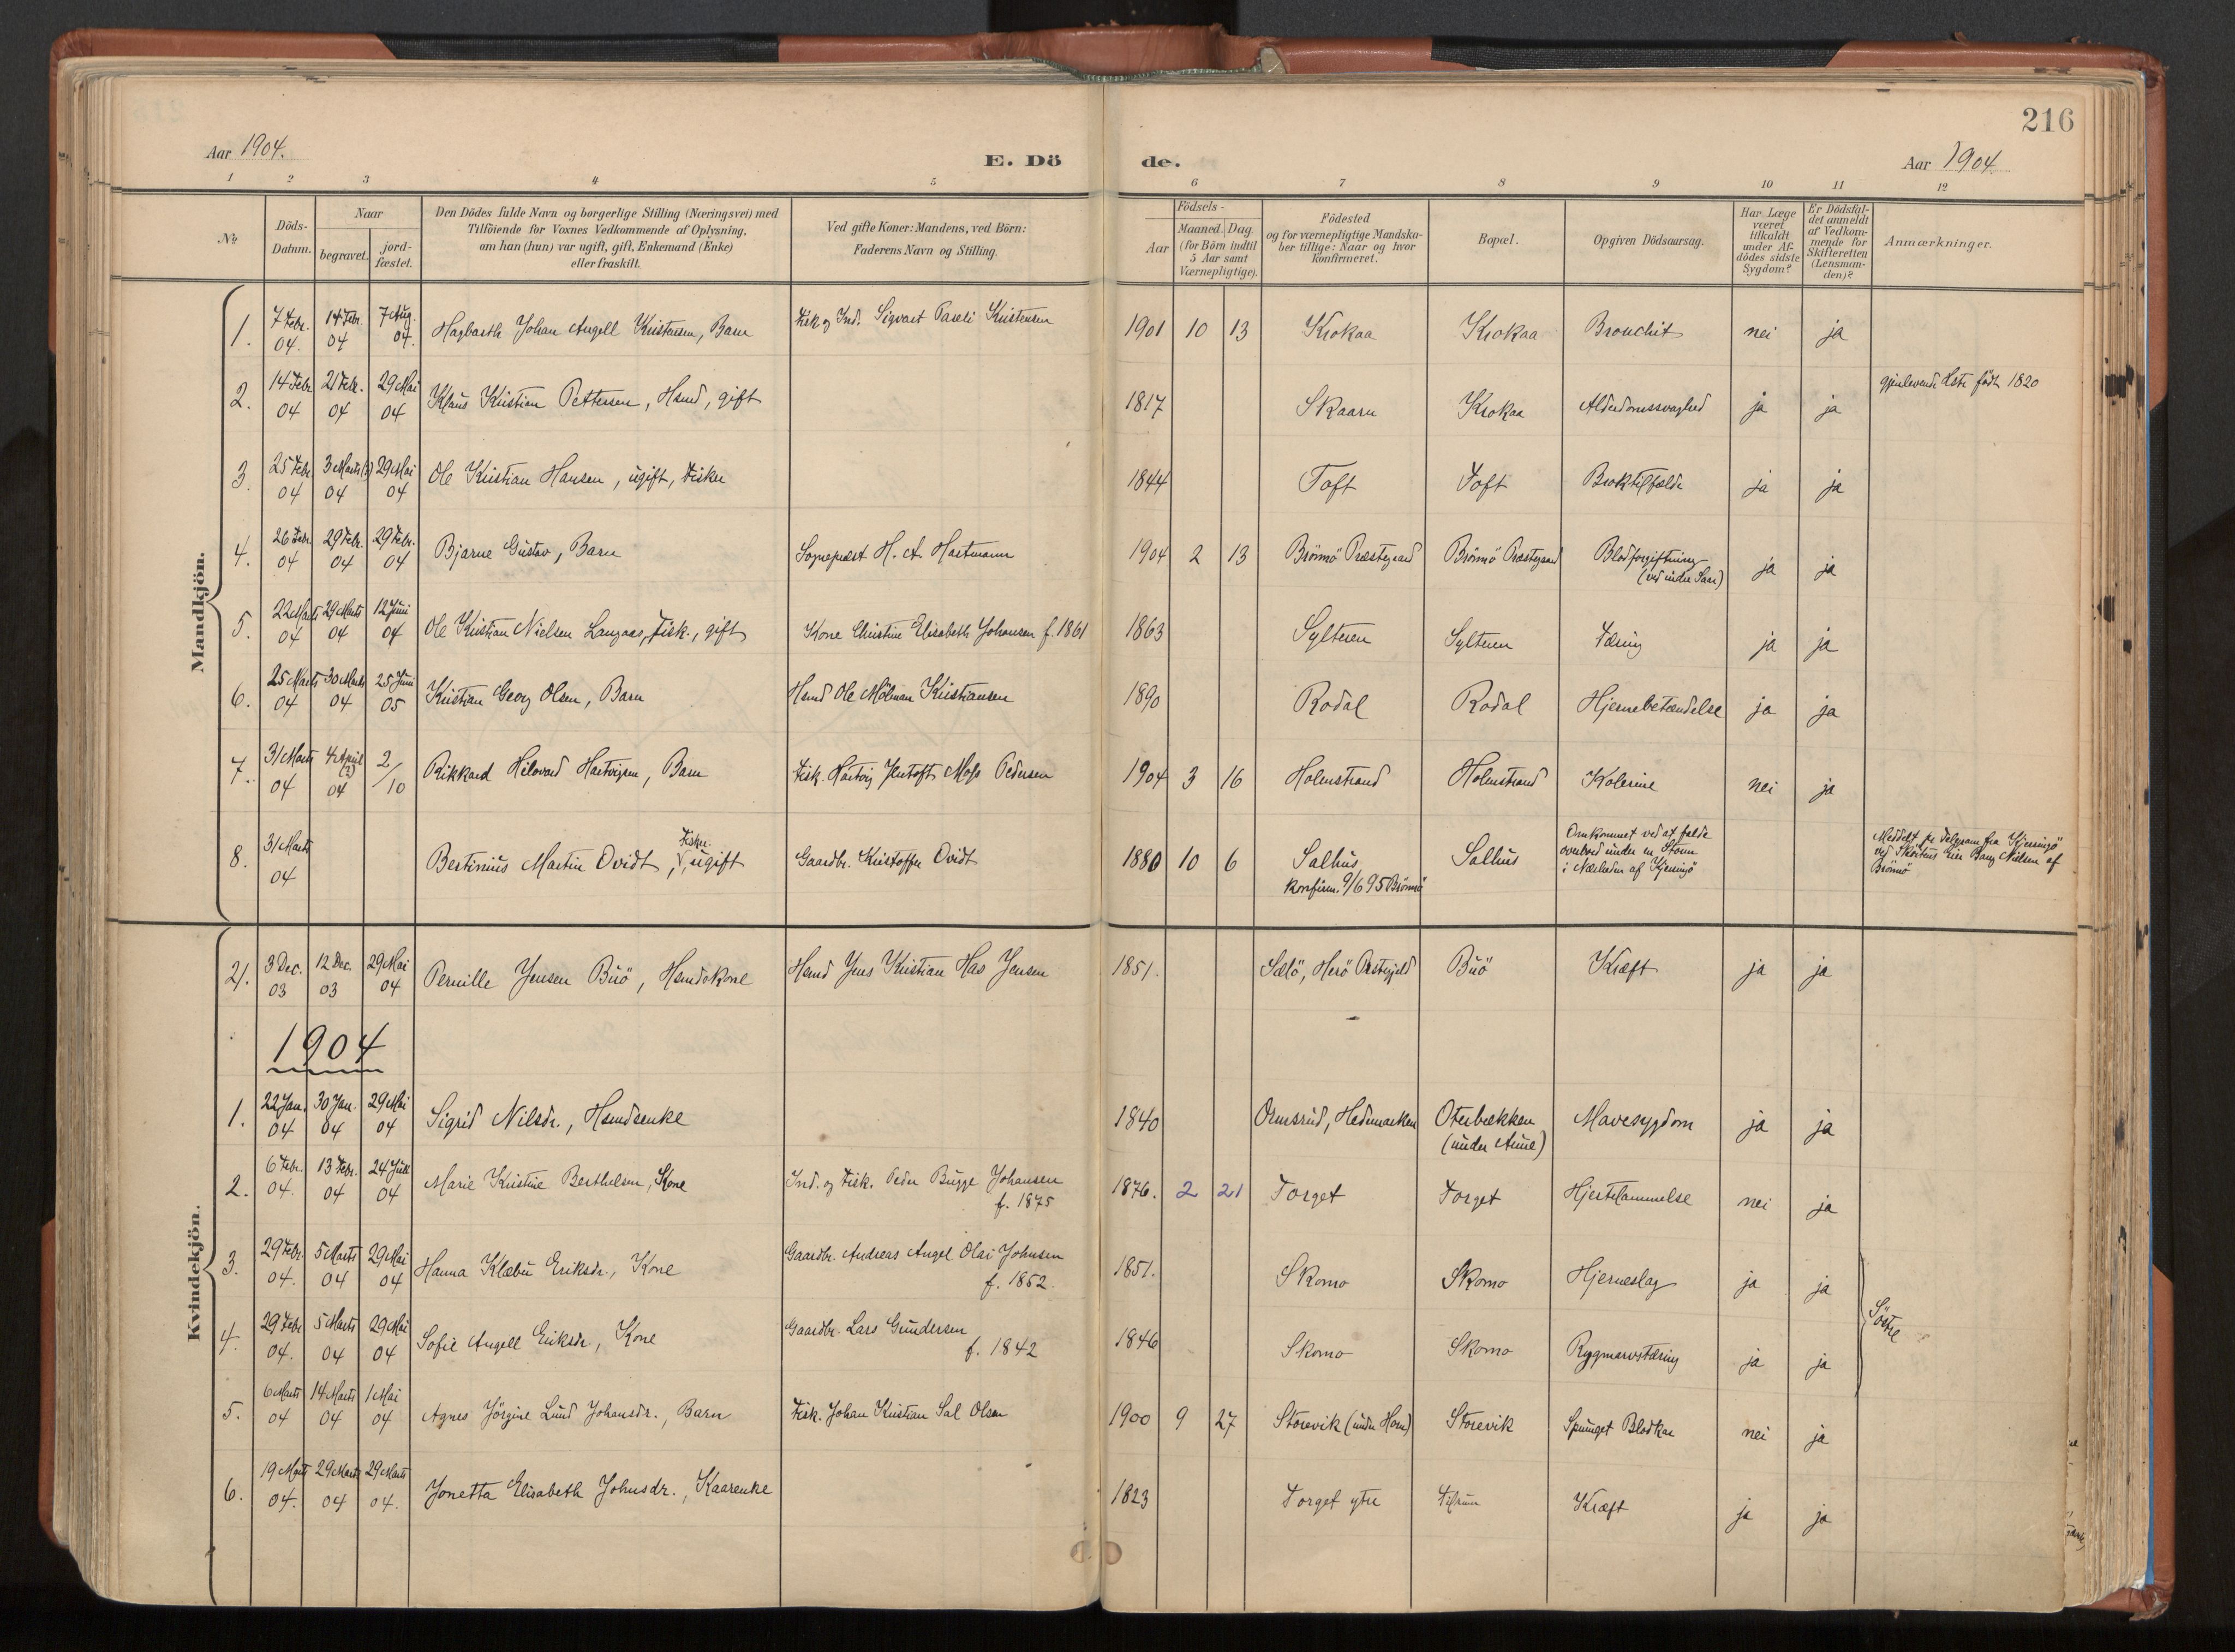 216
Aar 1904.
E. Dö
de.
Aar 1904.
1 2 3 4 5 6 7 8 9 10 11 12
No.
Döds-Datum.
Naar
begravet.
jord-fæstet.
Den Dödes fulde Navn og borgerlige Stilling (Næringsvei) med
Tilföiende for Voxnes Vedkommende af Oplysning,
om han (hun) var ugift, gift, Enkemand (Enke)
eller fraskilt.
Ved gifte Koner: Mandens, ved Börn:
Faderens Navn og Stilling.
Födsels-
Aar
Maaned. Dag.
(for Börn indtil
5 Aar samt
Værnepligtige).
Födested
og for værnepligtige Mandska-
ber tillige: Naar og hvor
konfirmeret.
Bopæl.
Opgiven Dödsaarsag.
Har Læge
været
tilkaldt
under Af-
dödes sidste
Sygdom?
Er Dödsfal-
det anmeldt
af Vedkom-
mende for
Skifteretten
(Lensman-
den)?
Anmærkninger.
Mandkjön.
1. 7 Febr. 04. 14 Febr. 04 7 Aug. 04. Hagbarth Johan Angell Kristensen, Barn Fisk. og Ind. Sigvart Paseli Kristensen 1901 10 13 Krokaa Krokaa Bronchit nei ja
2. 14 Febr. 04 21 Febr. 04 29 Mai 04 Klaus Kristian Pettersen, Hsmd, gift 1817 Skaarn Krokaa Alderdomssvaghed ja ja gjenlevende født 1820
3. 25 Febr. 04 3 Marts (?) 04 29 Mai 04 Ole Kristian Hansen, ugift, Fisker 1844 Toft Toft Broktilfælde ja ja
4. 26 Febr. 04 29 Febr. 04 29 Febr. 04 Bjarne Gustav, Barn Sogneprest H. A. Hartmann 1904 2 13 Brönnö Præstegaard Brönnö Præstegaard Blodforgiftning ja ja
5. 22 Marts 04 29 Marts 04 12 Juni 04 Ole Kristian Nielsen Langaas, Fisk., gift Kone Christine Elisabeth Johansen f. 1861 1863 Sylteren Sylteren Tæring ja ja
6. 25 Marts 04 30 Marts 04 25 Juni 05 Kristian Georg Olsen, Barn Hsmd Ole Mölman Kristiansen 1890 Rodal Rodal Hjernebetændelse ja ja
7. 31 Marts 04 4 April (?) 04 2/10 Rikkard Hilovard Hartvigsen, Barn Fisk. Hartvig Jentoft Moss Pedersen 1904 3 16 Holmstrand Holmstrand Kolerine nei ja
8. 31 Marts 04 Bertinius Martin Ovidt, Fisker, ugift Gaardbr. Kristoffer Ovidt 1880 10 6 Salhus
konfirm. 9/6 95 Brönnö
Salhus
Omkommet ved at falde
overbord under en Storm
i Nærheden af Kjerringö
Meddelt pr Telegram fra Kjerringö
ved Sköitens Eier Bang Nielsen af
Brönnö
Kvindekjön.
21. 3 Dec. 03 12 Dec. 03 29 Mai 04 Pernille Jensen Buö, Hsmdskone Hsmd Jens Kristian Has Jensen 1851. Sælö, Herö Præstegjeld Buö Kræft ja ja
1904
1. 22 Jan. 04 30 Jan. 04 29 Mai 04 Sigrid Nilsdr., Hsmdsenke 1840 Ormsrud, Hedemarken Oterbækken
(under Aune)
Mavesygdom ja ja
2. 6 Febr. 04. 13 Febr. 04 24 Juli 04 Marie Kristine Berthelsen, Kone Ind. og Fisk. Peder Bugge Johansen
f. 1875
1876. 2 21 Torget Torget Hjertelammelse nei ja
3. 29 Febr. 04. 5 Marts 04 29 Mai 04 Hanna Klæbu Eriksdr., Kone Gaardbr. Andreas Angel Olai Johnsen
f. 1852.
1851. Skomo Skomo Hjerneslag ja ja
4. 29 Febr. 04. 5 Marts 04 29 Mai 04 Sofie Angell Eriksdr., Kone Gaardbr. Lars Gundersen
f. 1842
1846 Skomo Skomo Rygmarvstæring ja ja
Söstre
5. 6 Marts 04 14 Marts 04 1 Mai 04 Agnes Jörgine Lund Johansdr., Barn Fisk. Johan Kristian Sal Olsen 1900 9 27 Storevik (under Horn) Storevik Sprunget Blodkar nei ja
6. 19 Marts 04. 29 Marts 04 29 Marts 04. Jonetta Elisabeth Johnsdr., Kaarenke 1823 Torget ytre Kræft ja ja